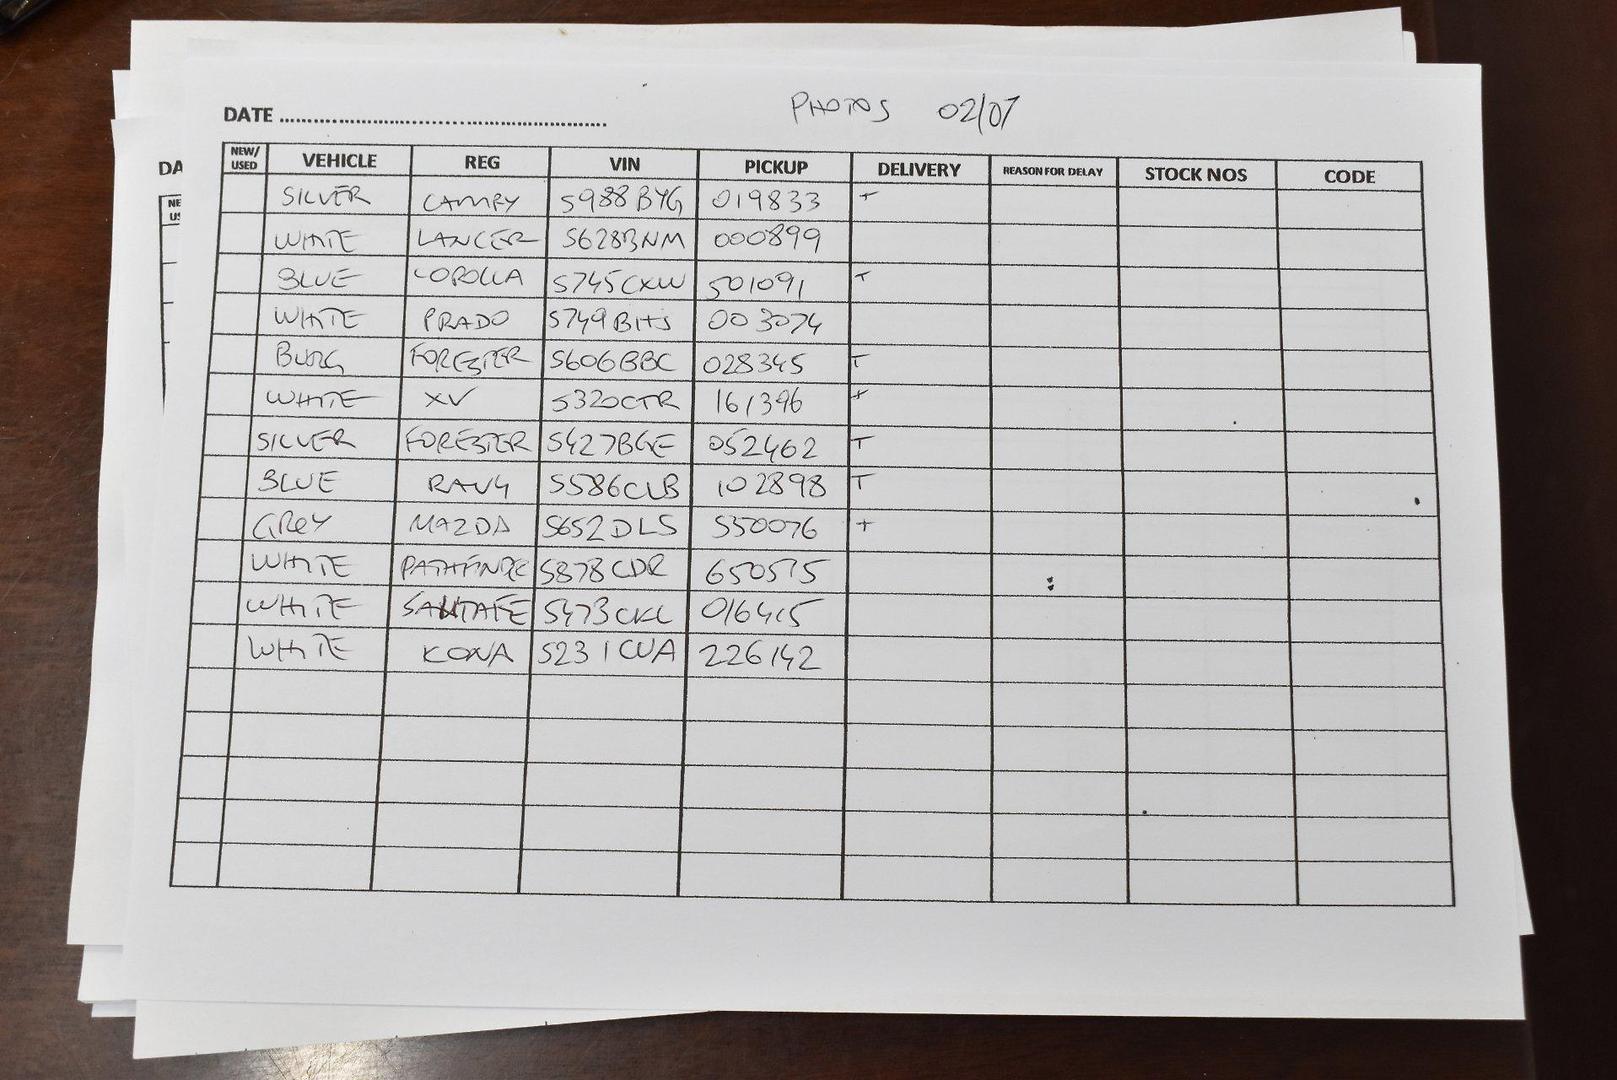 PHOTOS 02/07
DATE ................................................
NEW/ USED VEHICLE REG VIN PICKUP DELIVERY REASON FOR DELAY STOCK NOS CODE
SILVER CAMRY S988BYG 019833 T
WHITE LANCER S628BNM 000899
BLUE COROLLA S745CXW 501091 T
WHITE PRADO S749BHJ 003074
BURG FORESTER S606BBC 028345 T
WHITE XV S320CTR 161396 T
SILVER FORESTER S427BGE 052462 T
BLUE RAV4 S586CLB 102898 T
GREY MAZDA S652DLS 550076 T
WHITE PATHFINDE S878CDR 650515
WHITE SANTAFE S473CKL 016415
WHITE KONA S231CUA 226142
DA
NE
US